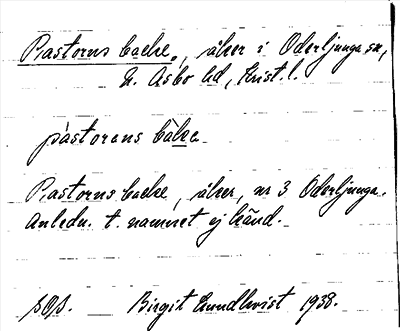 Pastorns backe, åker i Oderljunga sn,
N. Åsbo hd, Krist. l.
pàstorens bàke
Pastorns backe, åker, nr 3 Oderljunga.
Anledn. t. namnet ej känd.
Birgit Lundkvist 1938.